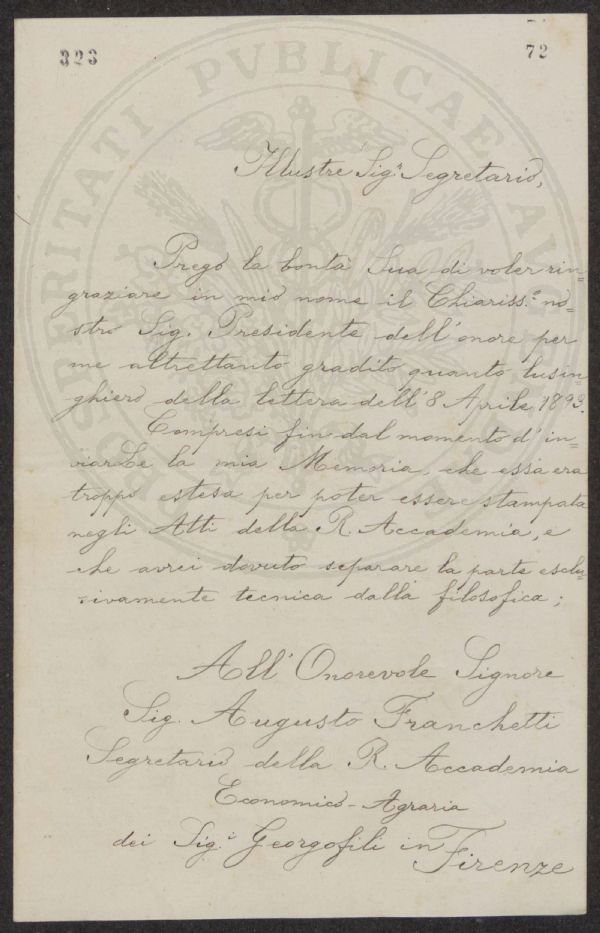 323
72
Illustre Sig.r Segretario,
Prego la bontà Sua di voler rin=
graziare in mio nome il Chiariss.o no=
stro Sig. Presidente dell'onore per
me altrettanto gradito quanto lusin=
ghiero della lettera dell'8 Aprile 1893.
Compresi fin dal momento d'in=
viarLe la mia Memoria, che essa era
troppo estesa per poter essere stampata
negli Atti della R. Accademia, e
che avrei dovuto separare la parte esclu=
sivamente tecnica dalla filosofica;
All'Onorevole Signore
Sig. Augusto Franchetti
Segretario della R. Accademia
Economico-Agraria
dei Sig.i Georgofili in Firenze
PROSPERITATI PVBLICAE AVGENDAE